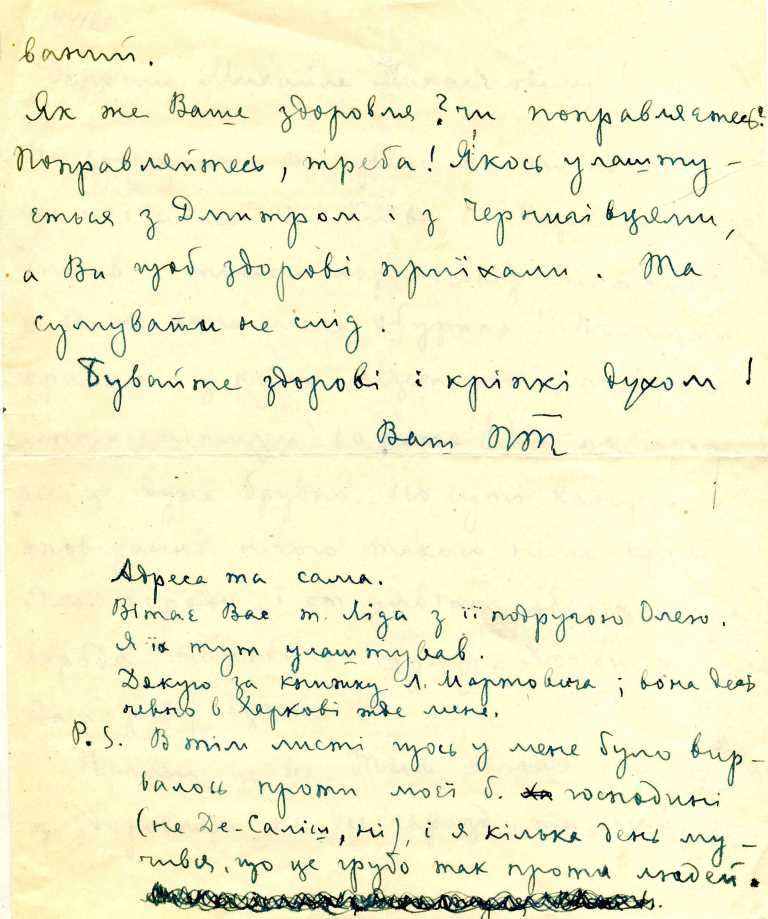 ваний.
Як же Ваше здоровля? чи поправляєтесь?
Поправляйтесь, треба! Якось улашту-
ється з Дмитром і з Чернигівцями,
а Ви щоб здорові приїхали. Та
сумувати не слід.
Бувайте здорові і кріпкі духом!
Ваш ПТ
Адреса та сама.
Вітає Вас т. Ліда з її подругою Олею.
Я їх тут улаштував.
Дякую за книжку Л. Мартовича; вона десь
певно в Харкові жде мене.
P. S. В тім листі щось у мене було вир-
валось проти моєї б. господині
(не Де-Саліш, ні), і я кілька день му-
чився, що це грубо так проти людей.